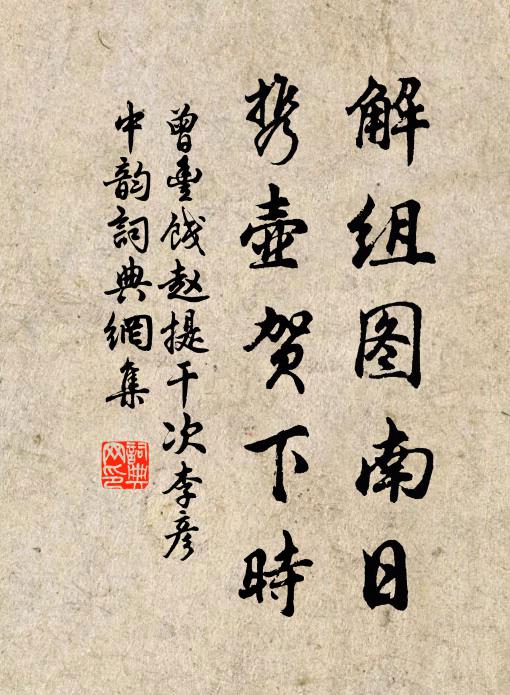 解组图南日
携壶贺下時
曾豐餞赵提干次李彦
中韵詞典網集
詞典
网印